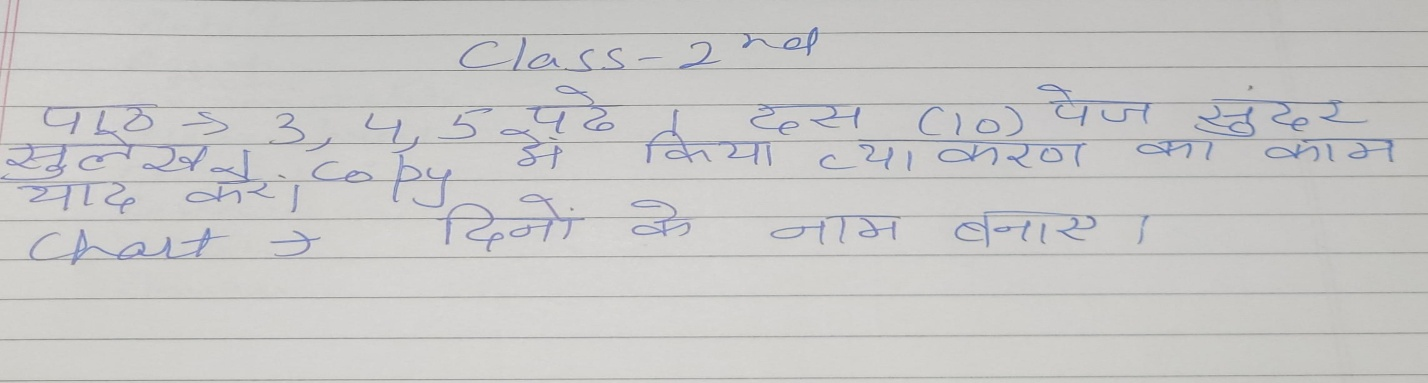 Class-2nd
पाठ → 3, 4, 5 पढे । दस (10) पेज सुंदर
सुलेख करें. Copy में किया व्याकरण का काम
याद करें।
Chart → दिनों के नाम बनाए ।